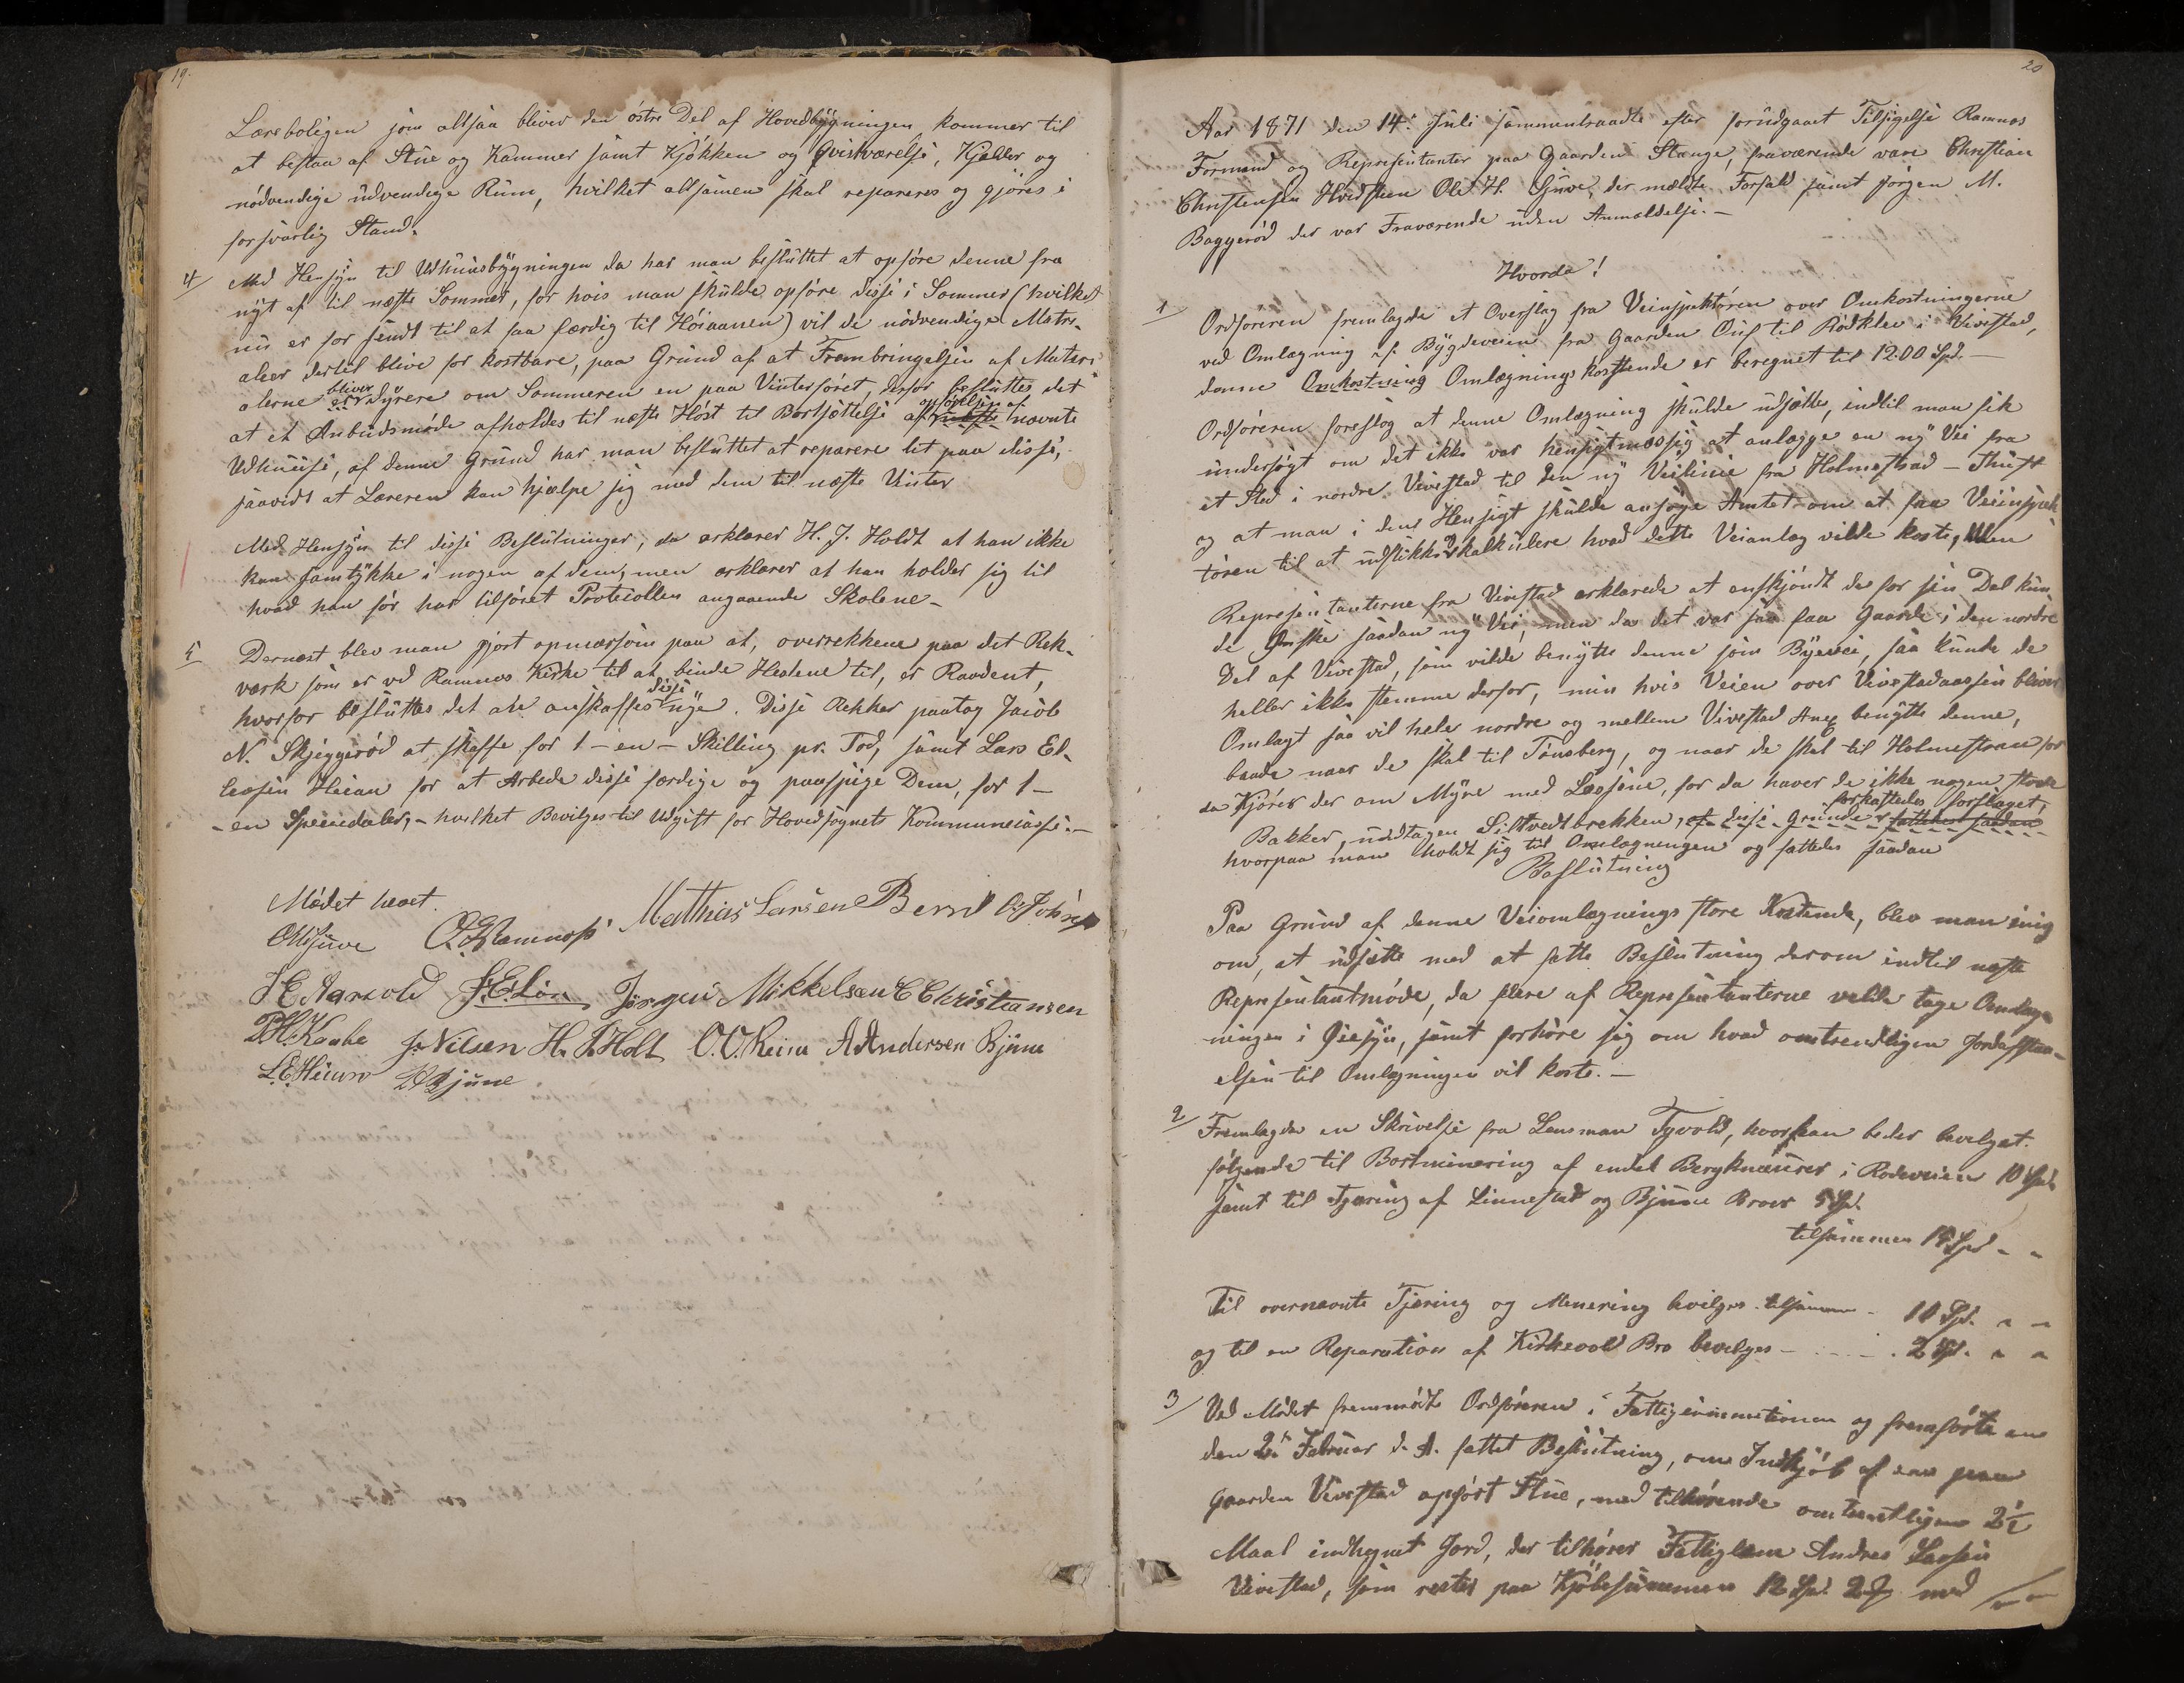 19.
Lærerboligen som altsaa bliver den östre Del af Hovedbygningen kommer til
at bestaa af Stue og Kammer samt Kjökken og Qvistværelse, Kjelder og
nödvendige udvendige Rum, hvilket altsammen skal repareres og gjöres i
forsvarlig Stand.
4/ Med Hensyn til Udhuusbygningen da har man besluttet at opföre denne fra
nyt af til næste Sommer, for hvis man skulde opföre disse i Sommer (hvilket
nu er for sendt til at faa færdig til Höiaanen) vil de nödvendige Matri-
aleer dertil blive for kostbare, paa Grund af at Frembringelsen af Materi-
alerne er bliver dyrere om Sommeren en paa Vinterföret, derfor besluttes det
at et Anbudsmöde afholdes til næste Höst til Bortsættelse af opförelsen af nævnte
Udhuuse, af denne Grund har man besluttet at reparere lit paa disse,
saavidt at Læreren kan hjælpe sig med dem til næste Vinter
Med Hensyn til disse Beslutninger, da erklærer H. J. Holdt at han ikke
kan samtykke i nogen af dem, men erklærer at han holder sig til
hvad han för har tilföret Protocollen angaaende Skolene-
5/ Dernæst blev man gjort opmærksom paa at, overrekkene paa det Rek-
værk som er ved Ramnes Kirke til at binde Hestene til, er Raadent,
hvorfor besluttes det at anskaffes disse nye. Disse Rekker paatog Jacob
N. Skjeggeröd at skaffe for 1 - en - Skilling pr. Fod, samt Lars El-
lefsen Heian for at Arbeide disse færdige og paaspige Dem, for 1 -
- en Speciedaler, - hvilket Bevilges til Udgift for Hovedsognets Kommunecasse. -
Mödet hævet.
OHGjuve O.Ramnoss Mathias Larsen Bernt O. Johnsen
H E Aarvold J.E.Lön Jörgen Mikkelsen C Christiansen
P.H.Kaabe J. Nilsen H. J Holt O.O.Reina A Andersen Bjune
L.E.Heian Bjune
20
Aar 1871 den 14de Juli sammentraadte efter forudgaaet Tilsigelse Ramnes
Formænd og Repræsentanter paa Gaarden Stange, fraværende vare Christian
Christensen Hvidsteen Ole H. Gjuve, der mældte Forfald samt Jörgen M.
Baggeröd der var Fraværende uden Anmældelse. -
Hvorda!
1/ Ordföreren fremlagde et Overslag fra Veiinspektören over Omkostningerne
ved Omlægning af Bygdeveien fra Gaarden Auf til Rödklev i Vivestad,
denne Omkostning Omlægnings kostende er beregnet til 1200 Spd. -
Ordföreren foreslog at denne Omlægning skulde udsættes, indtil man fik
undersögt om det ikke var hensigtmæssig at anlægge en ny Vei fra
et Sted i nordre Vivestad til den ny Veilinie fra Holmestrad -
og at man i den Hensigt skulde ansöge Amtet om at faa Veiinspek-
tören til at udstikke og kalkulere hvad dette Veianlæg vilde koste, Men
Repræsentanterne fra Vivestad erklærede at enskjöndt de for sin Del kun-
de Önske saadan ny Vei, men da det var saa faa Gaarde i den nordre
Del af Vivestad, som vilde benytte denne som Byevei, saa kunde de
heller ikke stemme derfor, men hvis Veien over Vivestadaassen bliver
Omlagt saa vil hele nordre og mellem Vivestad Anex benytte denne,
baade naar de skal til Tönsberg, og naar de skal til Holmestran for
da kjörer der om Myre med Læssene, for da haver de ikke nogen store
Bakker, undtagen Siltvedtbrekken, af disse Grunde forkastedes forslaget, fattedes saadan
hvorpaa man holdt sig til Omlægningen og fattedes saadan
Beslutning
Paa Grund af denne Veiomlægnings store Kostende, blev man enig
om, at udsætte med at fatte Beslutning derom indtil næste
Repræsentantmöde, da flere af Repræsentanterne vilde tage Omlæg-
ningen i Öiesyn, samt forhöre sig om hvad omtrendtligen Jordafstaa-
elsen til Omlægningen vil koste. -
2/ Fremlagdes en Skrivelse fra Lensman Tyvold, hvor han beder bevilget
fölgende til Bortminering af endel Bergknauser i Rodeveien 10 Spd.
samt til Tjæring af Linnestad og Bjune Broer 5 Spd.
tilsammen 15 Spd - -
Til overnævnte Tjæring og Menering bevilges tilsammen - 10 Spd. - -
og til en Reparation af Kirkevold Bro bevilges - - - - 2 Spd. - -
3/ Ved Mödet fremmödte Ordföreren i Fattigcommitionen og fremförte en
den 2den Februar d. A. fattet Beslutning, om Indkjöb af en paa
Gaarden Vivestad opfört Stue, med tilhörende omtrentligen 2 1/2
Maal indhegnet Jord, der tilhörer Fattiglem Andres Larsen
Vivestad, som rester paa Kjöbesummen 12 Spd. 2 med